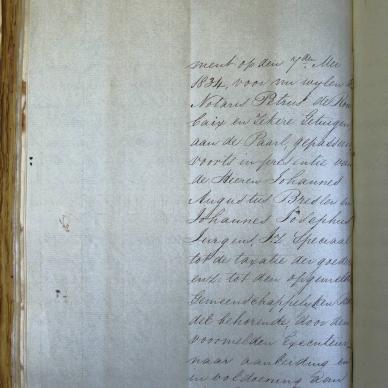 ment op den 7de Mei
1834, voor nu wylen de
Notaris Petrus de Rou
Caix en Zekere Getuigen
aan de Paarl, gepasseerd
voorts in presentie van
de Heeren Johannes
Augustus Bresler en
Johannes Josephus
Jurgens, Speciaal
tot de taxatie der goede
enz: tot den opgemelde
Gemeenschappelyken
del behorende, door den
voormelden Executeur,
naar aanleiding en
in voldoening aan